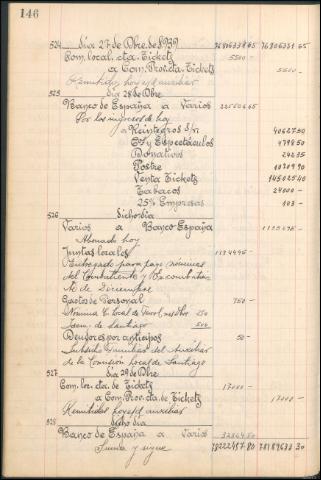 146
524 día 27 de Dbre. de 1939 76806331 65 76806331 65
Com. local. cta. Tickets 5500 —
a Com. Prov. cta. Tickets 5500 —
Remitido hoy s/ auxiliar
525 día 28 de Dbre.
Banco de España a Varios
Por los ingresos de hoy
a Reintegros S/r
Cf y Espectáculos
Donativos
Postre
Venta Tickets
Tabacos 24000 —
25% Empresas 103 —
526 dicho día
Varios a Banco España
Abonado hoy
Juntas locales
Entregado para pago nóminas
del Combatiente y Ex-combatiente
de Diciembre
Gastos de Personal 750 —
Nómina C. local de Ferrol, 250
Idem. de Santiago 500
Deudores por anticipos 50 —
Subsidio Familiar del Auxiliar
de la Comisión local de Santiago
527 día 29 de Dbre
Com. loc. cta. de Tickets 17000 —
a Com. Prov. cta. de Tickets 17000 —
Remitidos hoy s/ auxiliar
528 dicho día
Banco de España a Varios
Suma y sigue